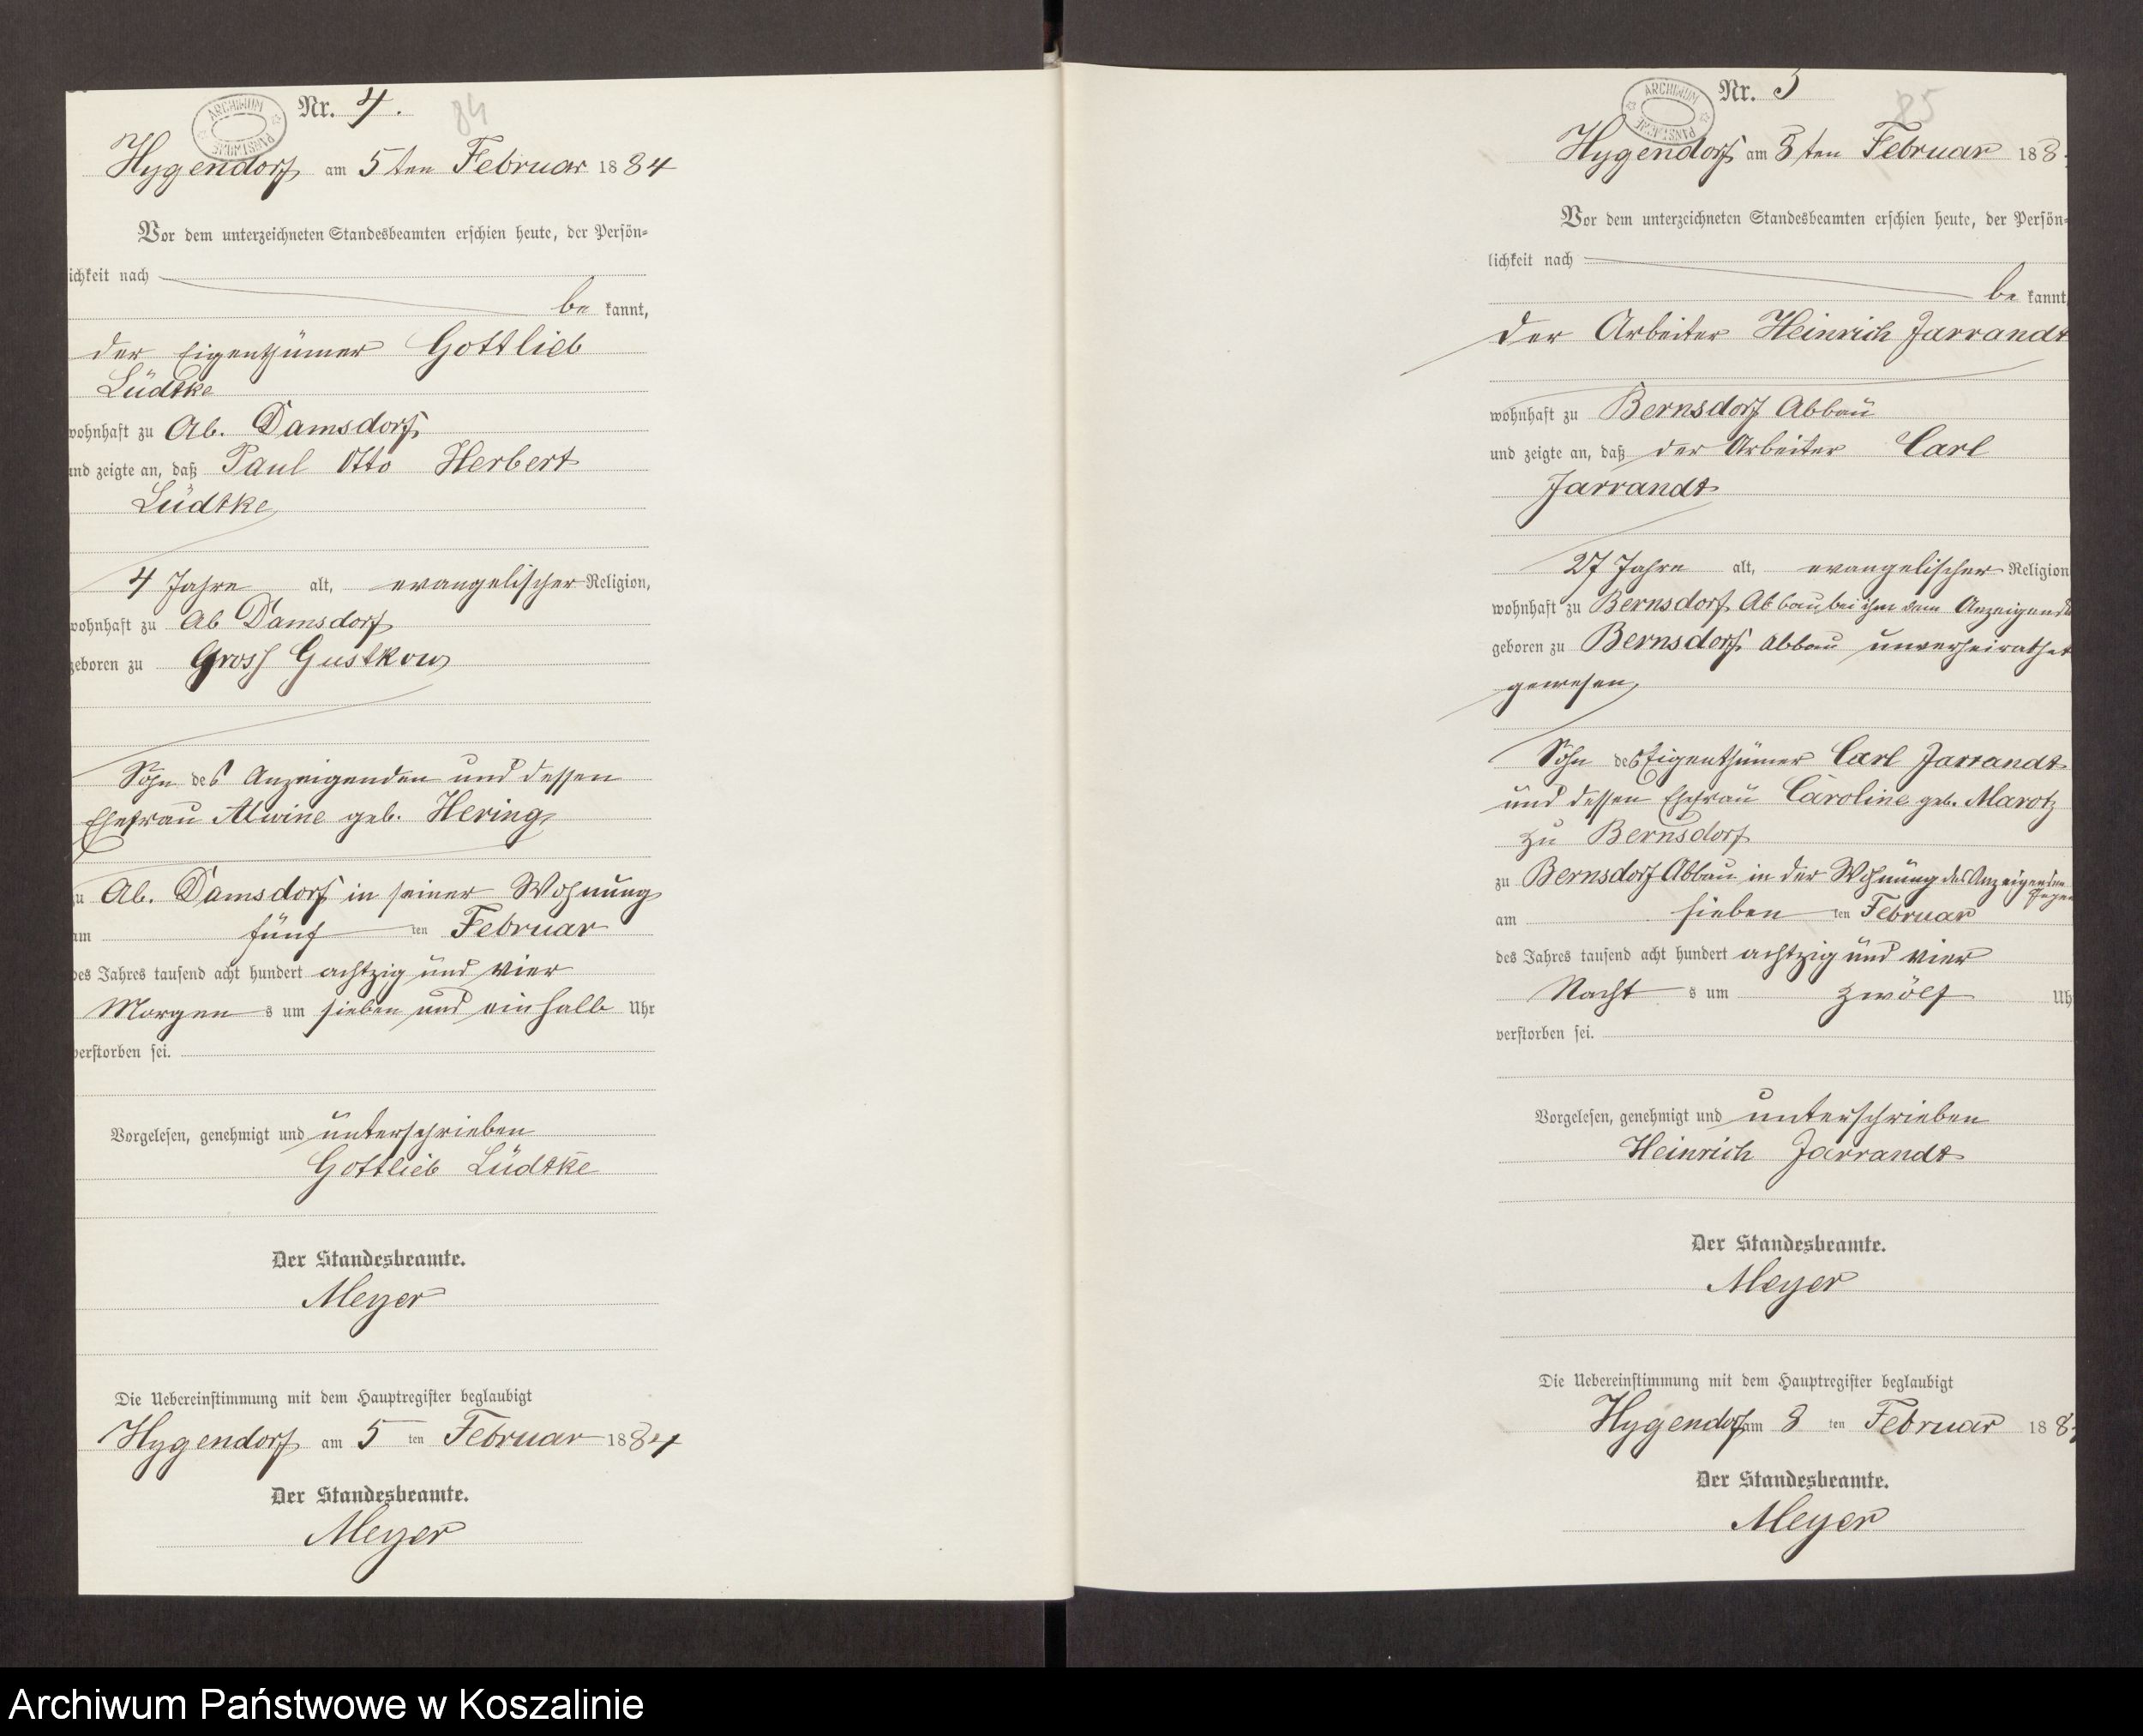 ARCHIWUM
PAŃSTWOWE
Nr. 4.
84
Hygendorf am 5ten Februar 1884
Vor dem unterzeichneten Standesbeamten erschien heute, der Persön-
ichkeit nach
be kannt,
der Eigenthümer Gottlieb
Lüdtke
wohnhaft zu Ab. Damsdorf
und zeigte an, daß Paul Otto Herbert
Lüdtke
4 Jahre alt, evangelischer Religion,
wohnhaft zu Ab Damsdorf
geboren zu Gross Gustkow
Sohn des Anzeigenden und dessen
Ehefrau Alwine geb. Hering
zu Ab. Damsdorf in seiner Wohnung
am fünf ten Februar
des Jahres tausend acht hundert achtzig und vier
Morgen s um sieben und einhalb Uhr
verstorben sei.
Vorgelesen, genehmigt und unterschrieben
Gottlieb Lüdtke
Der Standesbeamte.
Meyer
Die Uebereinstimmung mit dem Hauptregister beglaubigt
Hygendorf am 5 ten Februar 1884
Der Standesbeamte.
Meyer
ARCHIWUM
PAŃSTWOWE
Nr. 5
85
Hygendorf am 8ten Februar 188
Vor dem unterzeichneten Standesbeamten erschien heute, der Persön-
lichkeit nach
be kannt,
der Arbeiter Heinrich Jarrandt
wohnhaft zu Bernsdorf Abbau
und zeigte an, daß der Arbeiter Carl
Jarrandt
27 Jahre alt, evangelischer Religion
wohnhaft zu Bernsdorf Abbau bei ihm dem Anzeigende
geboren zu Bernsdorf Abbau unverheirathet
gewesen,
Sohn des Eigenthümer Carl Jarrandt
und dessen Ehefrau Caroline geb. Marotz
zu Bernsdorf
zu Bernsdorf Abbau in der Wohnung des Anzeigenden
am sieben ten Februar
des Jahres tausend acht hundert achtzig und vier
Nacht s um zwölf Uh
verstorben sei.
Vorgelesen, genehmigt und unterschrieben
Heinrich Jarrandt
Der Standesbeamte.
Meyer
Die Uebereinstimmung mit dem Hauptregister beglaubigt
Hygendorf am 8 ten Februar 188
Der Standesbeamte.
Meyer
Archiwum Państwowe w Koszalinie